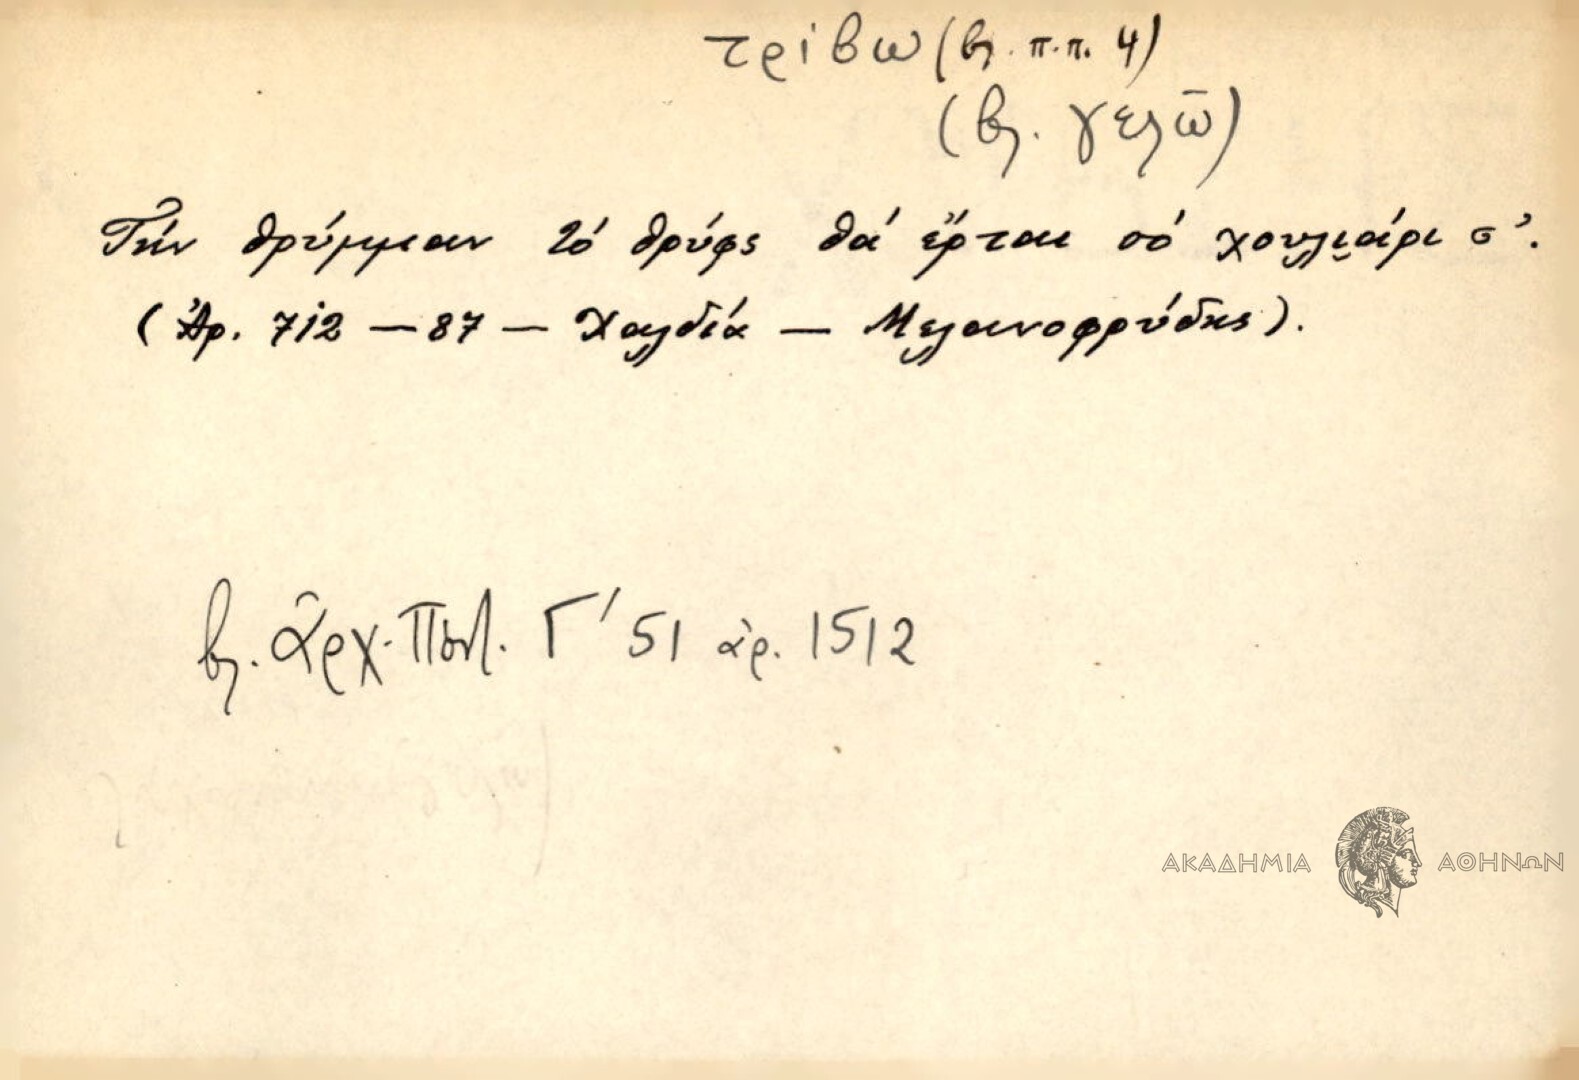 τρίβω (βλ. π.π. 4)
(βλ. γελῶ)
Τήν θρύμμαν τό θρύφς θά ἔρται σό χουλι̯άρι σ'.
(Ἀρ. 712 — 87 — Χαλδία — Μελανοφρύδης).
βλ. Ἀρχ. Πόντ. Γ' 51 ἀρ. 1512
ΑΚΑΔΗΜΙΑ ΑΘΗΝΩΝ